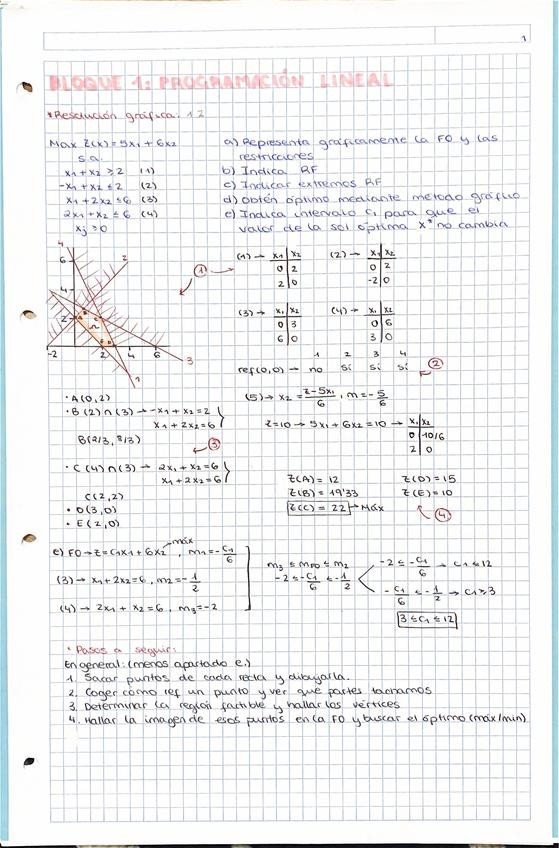 1
BLOQUE 1: PROGRAMACIÓN LINEAL
*Resolución gráfica. 12
Max Z(x) = 5x₁ + 6x₂
s.a.
x₁ + x₂ ≥ 2 (1)
-x₁ + x₂ ≤ 2 (2)
x₁ + 2x₂ ≤ 6 (3)
2x₁ + x₂ ≤ 6 (4)
xⱼ ≥ 0
a) Representa gráficamente la FO y las
restricciones
b) Indica RF
c) Indicar extremos RF
d) Obtén óptimo mediante método gráfico
e) Indica intervalo c₁ para que el
valor de la sol óptima x* no cambia
4
6
4
2
-2
2
4
6
2
3
1
①
(1) → x₁ | x₂
0 | 2
2 | 0
(2) → x₁ | x₂
0 | 2
-2 | 0
(3) → x₁ | x₂
0 | 3
6 | 0
(4) → x₁ | x₂
0 | 6
3 | 0
1 2 3 4
ref (0,0) → no sí sí sí
②
· A(0,2)
· B (2) ∩ (3) → -x₁ + x₂ = 2
x₁ + 2x₂ = 6
B(2/3, 8/3)
③
· C (4) ∩ (3) → 2x₁ + x₂ = 6
x₁ + 2x₂ = 6
C(2,2)
· D(3,0)
· E(2,0)
(5) → x₂ = z-5x₁/6, m = -5/6
Z=10 → 5x₁ + 6x₂ = 10 → x₁ | x₂
0 | 10/6
2 | 0
Z(A) = 12
Z(B) = 19'33
Z(C) = 22 → Máx
Z(D) = 15
Z(E) = 10
④
e) FO → Z = c₁x₁ + 6x₂ máx, m₁ = -c₁/6
(3) → x₁ + 2x₂ = 6, m₂ = -1/2
(4) → 2x₁ + x₂ = 6, m₃ = -2
m₃ ≤ mFO ≤ m₂
-2 ≤ -c₁/6 ≤ -1/2
-2 ≤ -c₁/6 → c₁ ≤ 12
-c₁/6 ≤ -1/2 → c₁ ≥ 3
3 ≤ c₁ ≤ 12
* Pasos a seguir:
En general: (menos apartado e.)
1. Sacar puntos de cada recta y dibujarla.
2. Coger como ref un punto y ver que partes tomamos
3. Determinar la región factible y hallar los vértices
4. Hallar la imagen de esos puntos en la FO y buscar el óptimo (máx/min)